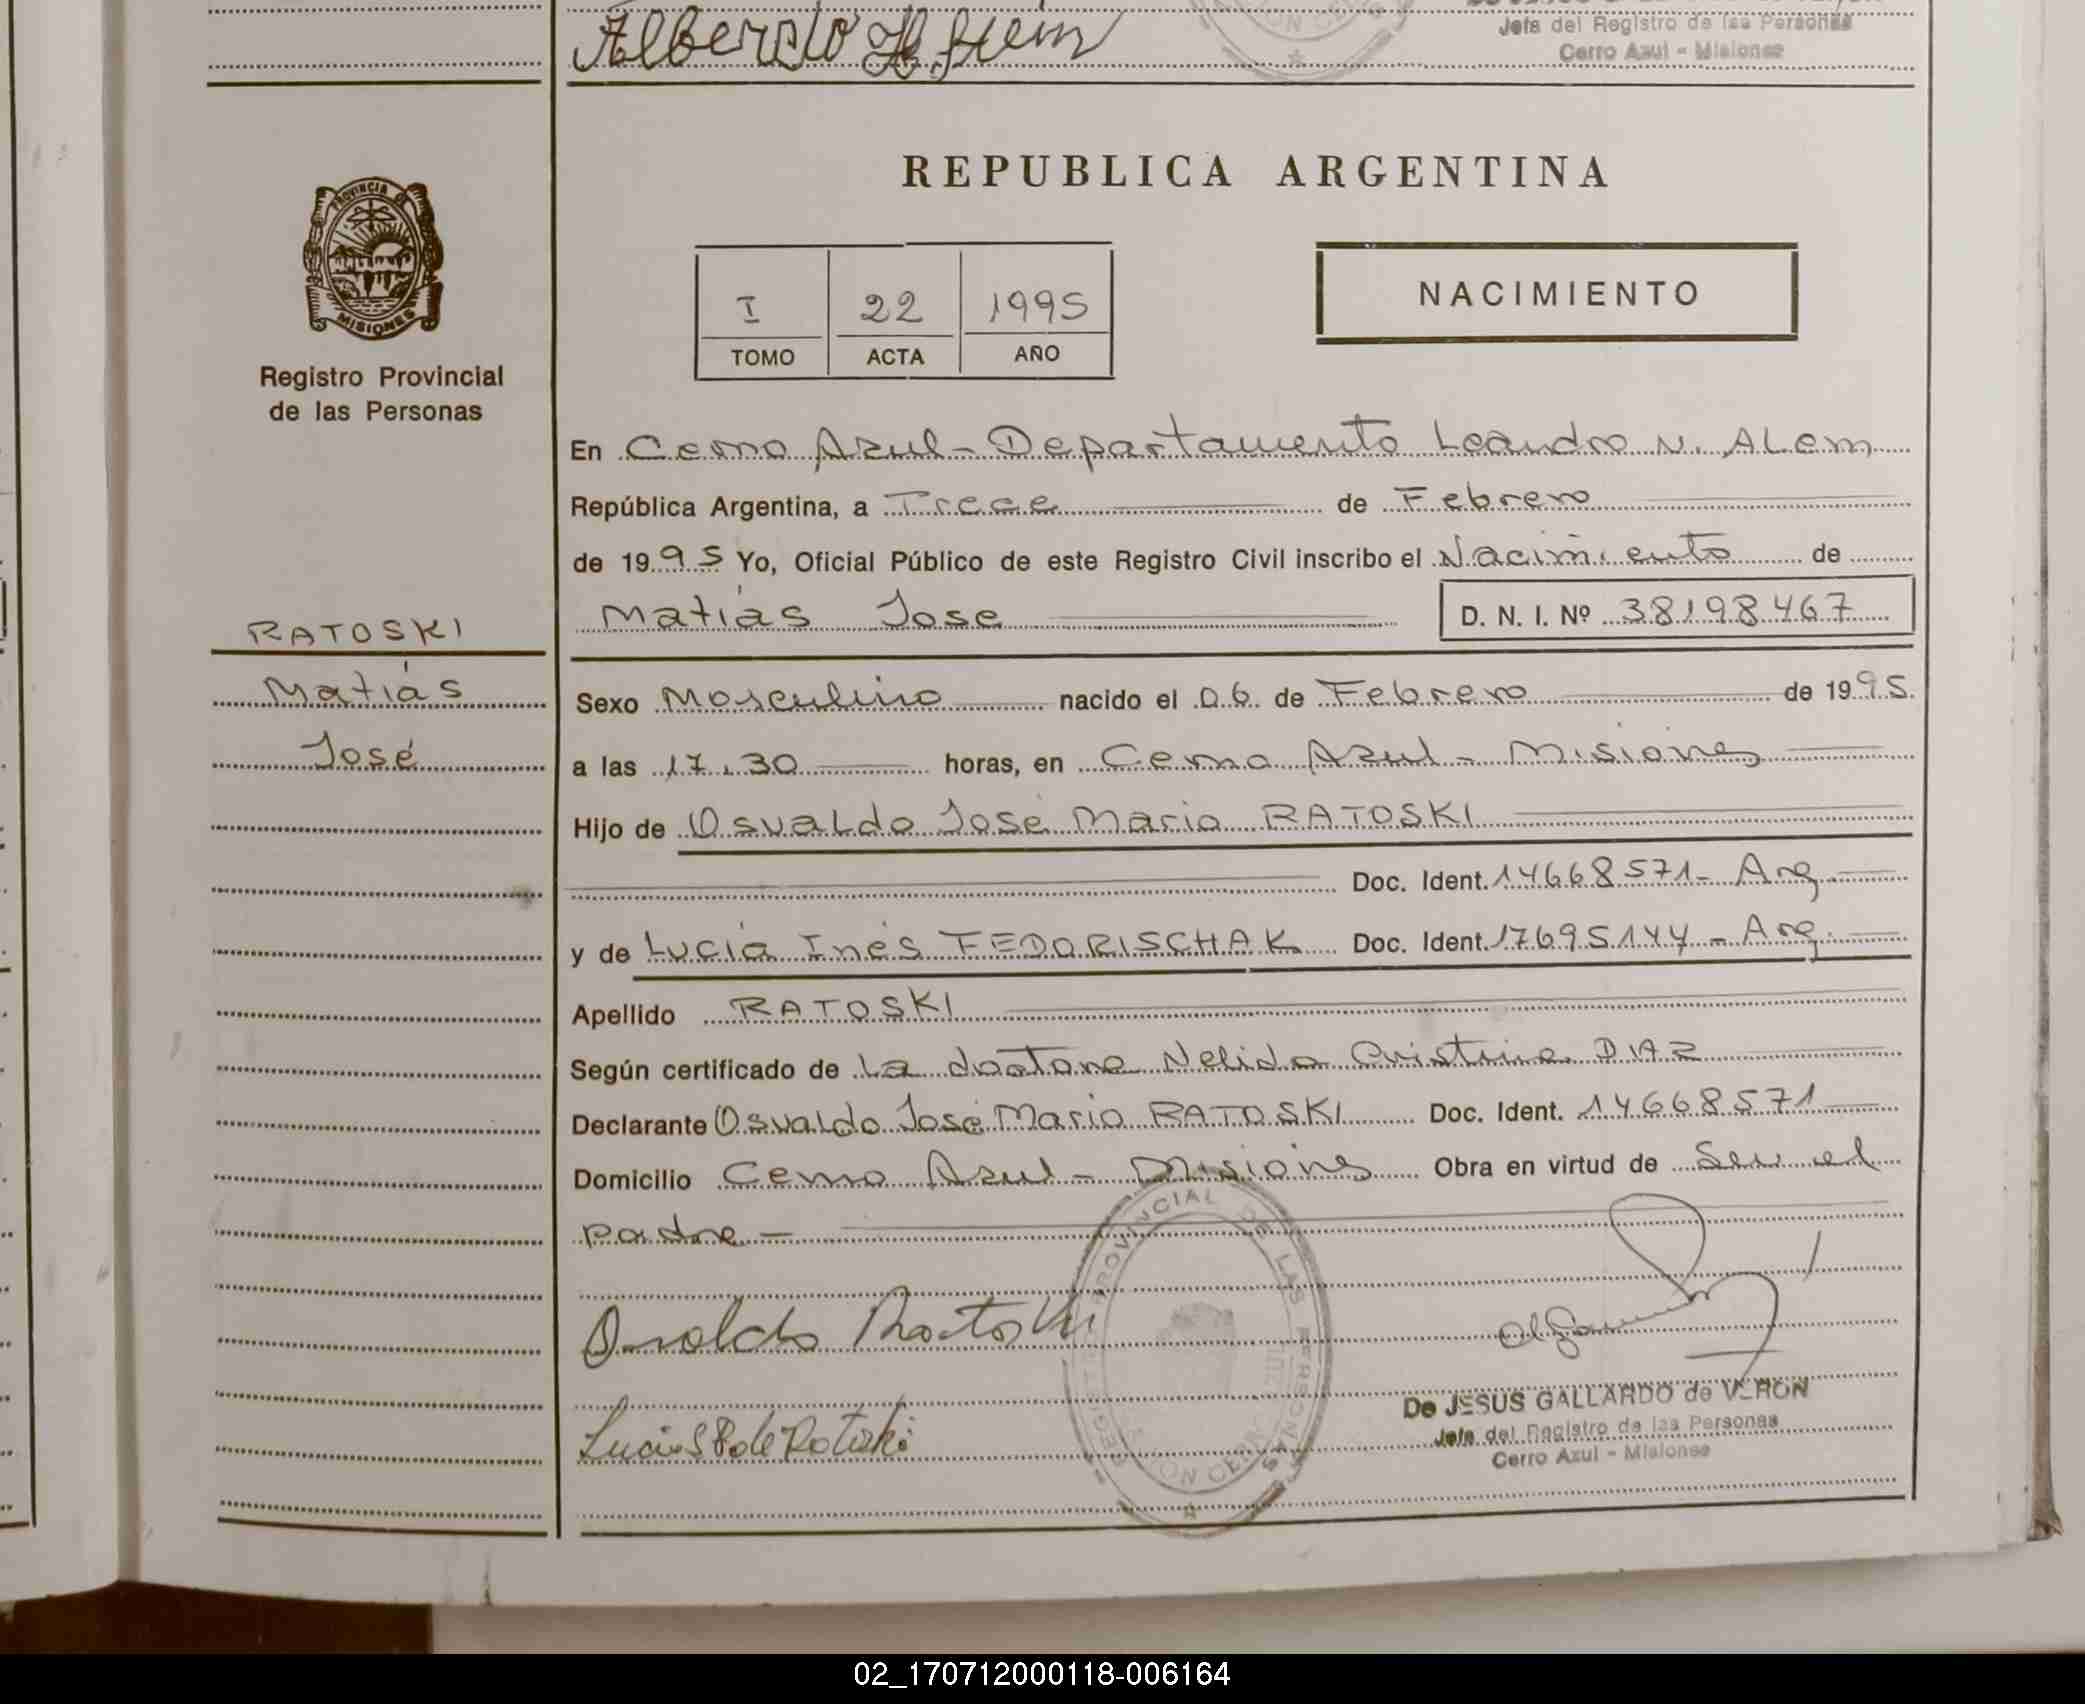 Alberdo
Jefe del Registro de las Personas
Cerro Azul - Misiones
PROVINCIA DE
MISIONES
Registro Provincial
de las Personas
REPUBLICA ARGENTINA
I 22 1995
TOMO ACTA AÑO
NACIMIENTO
RATOSKI
Matiás
José
En Cerro Azul - Departamento Leandro N. ALem
República Argentina, a Trece de Febrero
de 1995 Yo, Oficial Público de este Registro Civil inscribo el Nacimiento de
Matiás Jose D. N. I. Nº 38198467
Sexo Masculino nacido el 06 de Febrero de 1995.
a las 17.30 horas, en Cerro Azul - Misiones
Hijo de Osvaldo José Mario RATOSKI
Doc. Ident. 14668571 - Arg.
y de Lucía Inés FEDORISCHAK Doc. Ident. 17695144 - Arg.
Apellido RATOSKI
Según certificado de La doctora Nelida Cristina DIAZ
Declarante Osvaldo José Mario RATOSKI Doc. Ident. 14668571
Domicilio Cerro Azul - Misiones Obra en virtud de Ser el
padre -
Osvaldo Ratoski
Lucia de Ratoski
REGISTRO PROVINCIAL DE LAS PERSONAS
De JESUS GALLARDO de VERON
Jefe del Registro de las Personas
Cerro Azul - Misiones
02_170712000118-006164